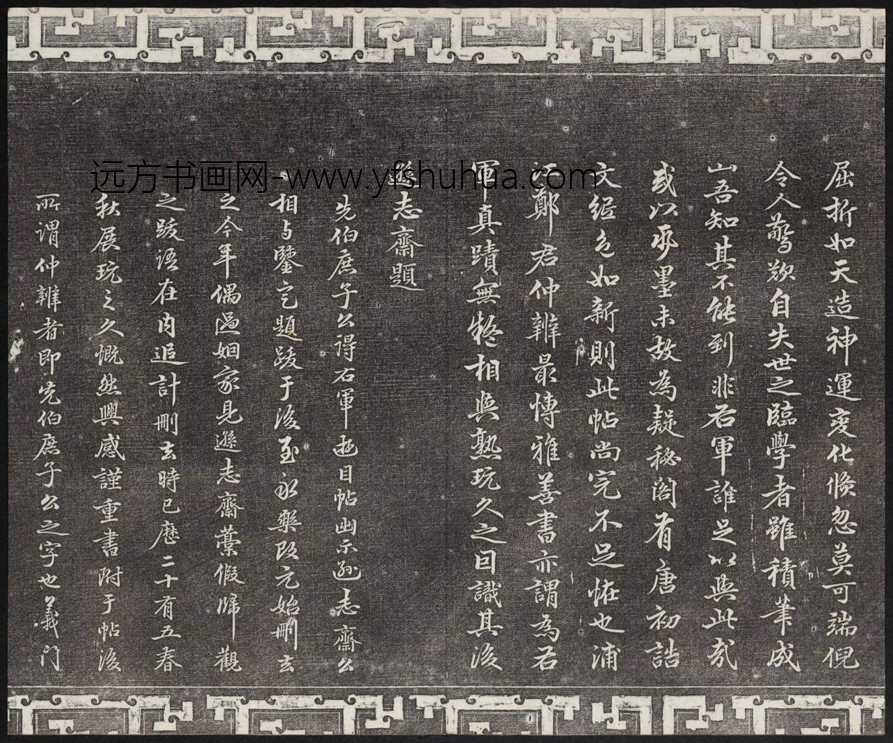 屈折如天造神運變化倏忽莫可端倪
令人驚歎自失世之臨學者雖積筆成
山吾知其不能到非右軍誰足以與此哉
或以章墨未故為疑秘閣有唐初誥
文繼色如新則此帖尚完不足怪也浦
江鄭君仲辨最博雅善書亦謂為右
軍真蹟無疑相與熟玩久之因識其後
遜志齋題
先伯庶子公得右軍遊目帖出示遜志齋公
相与鑒定題跋于後至永樂改元始刪去
之今年偶過姻家見遜志齋藁假歸觀
之跋語在內追計刪去時已歷二十有五春
秋展玩之久慨然興感謹重書附于帖後
所謂仲辨者即先伯庶子公之字也義门
远方书画网-www.yfshuhua.com